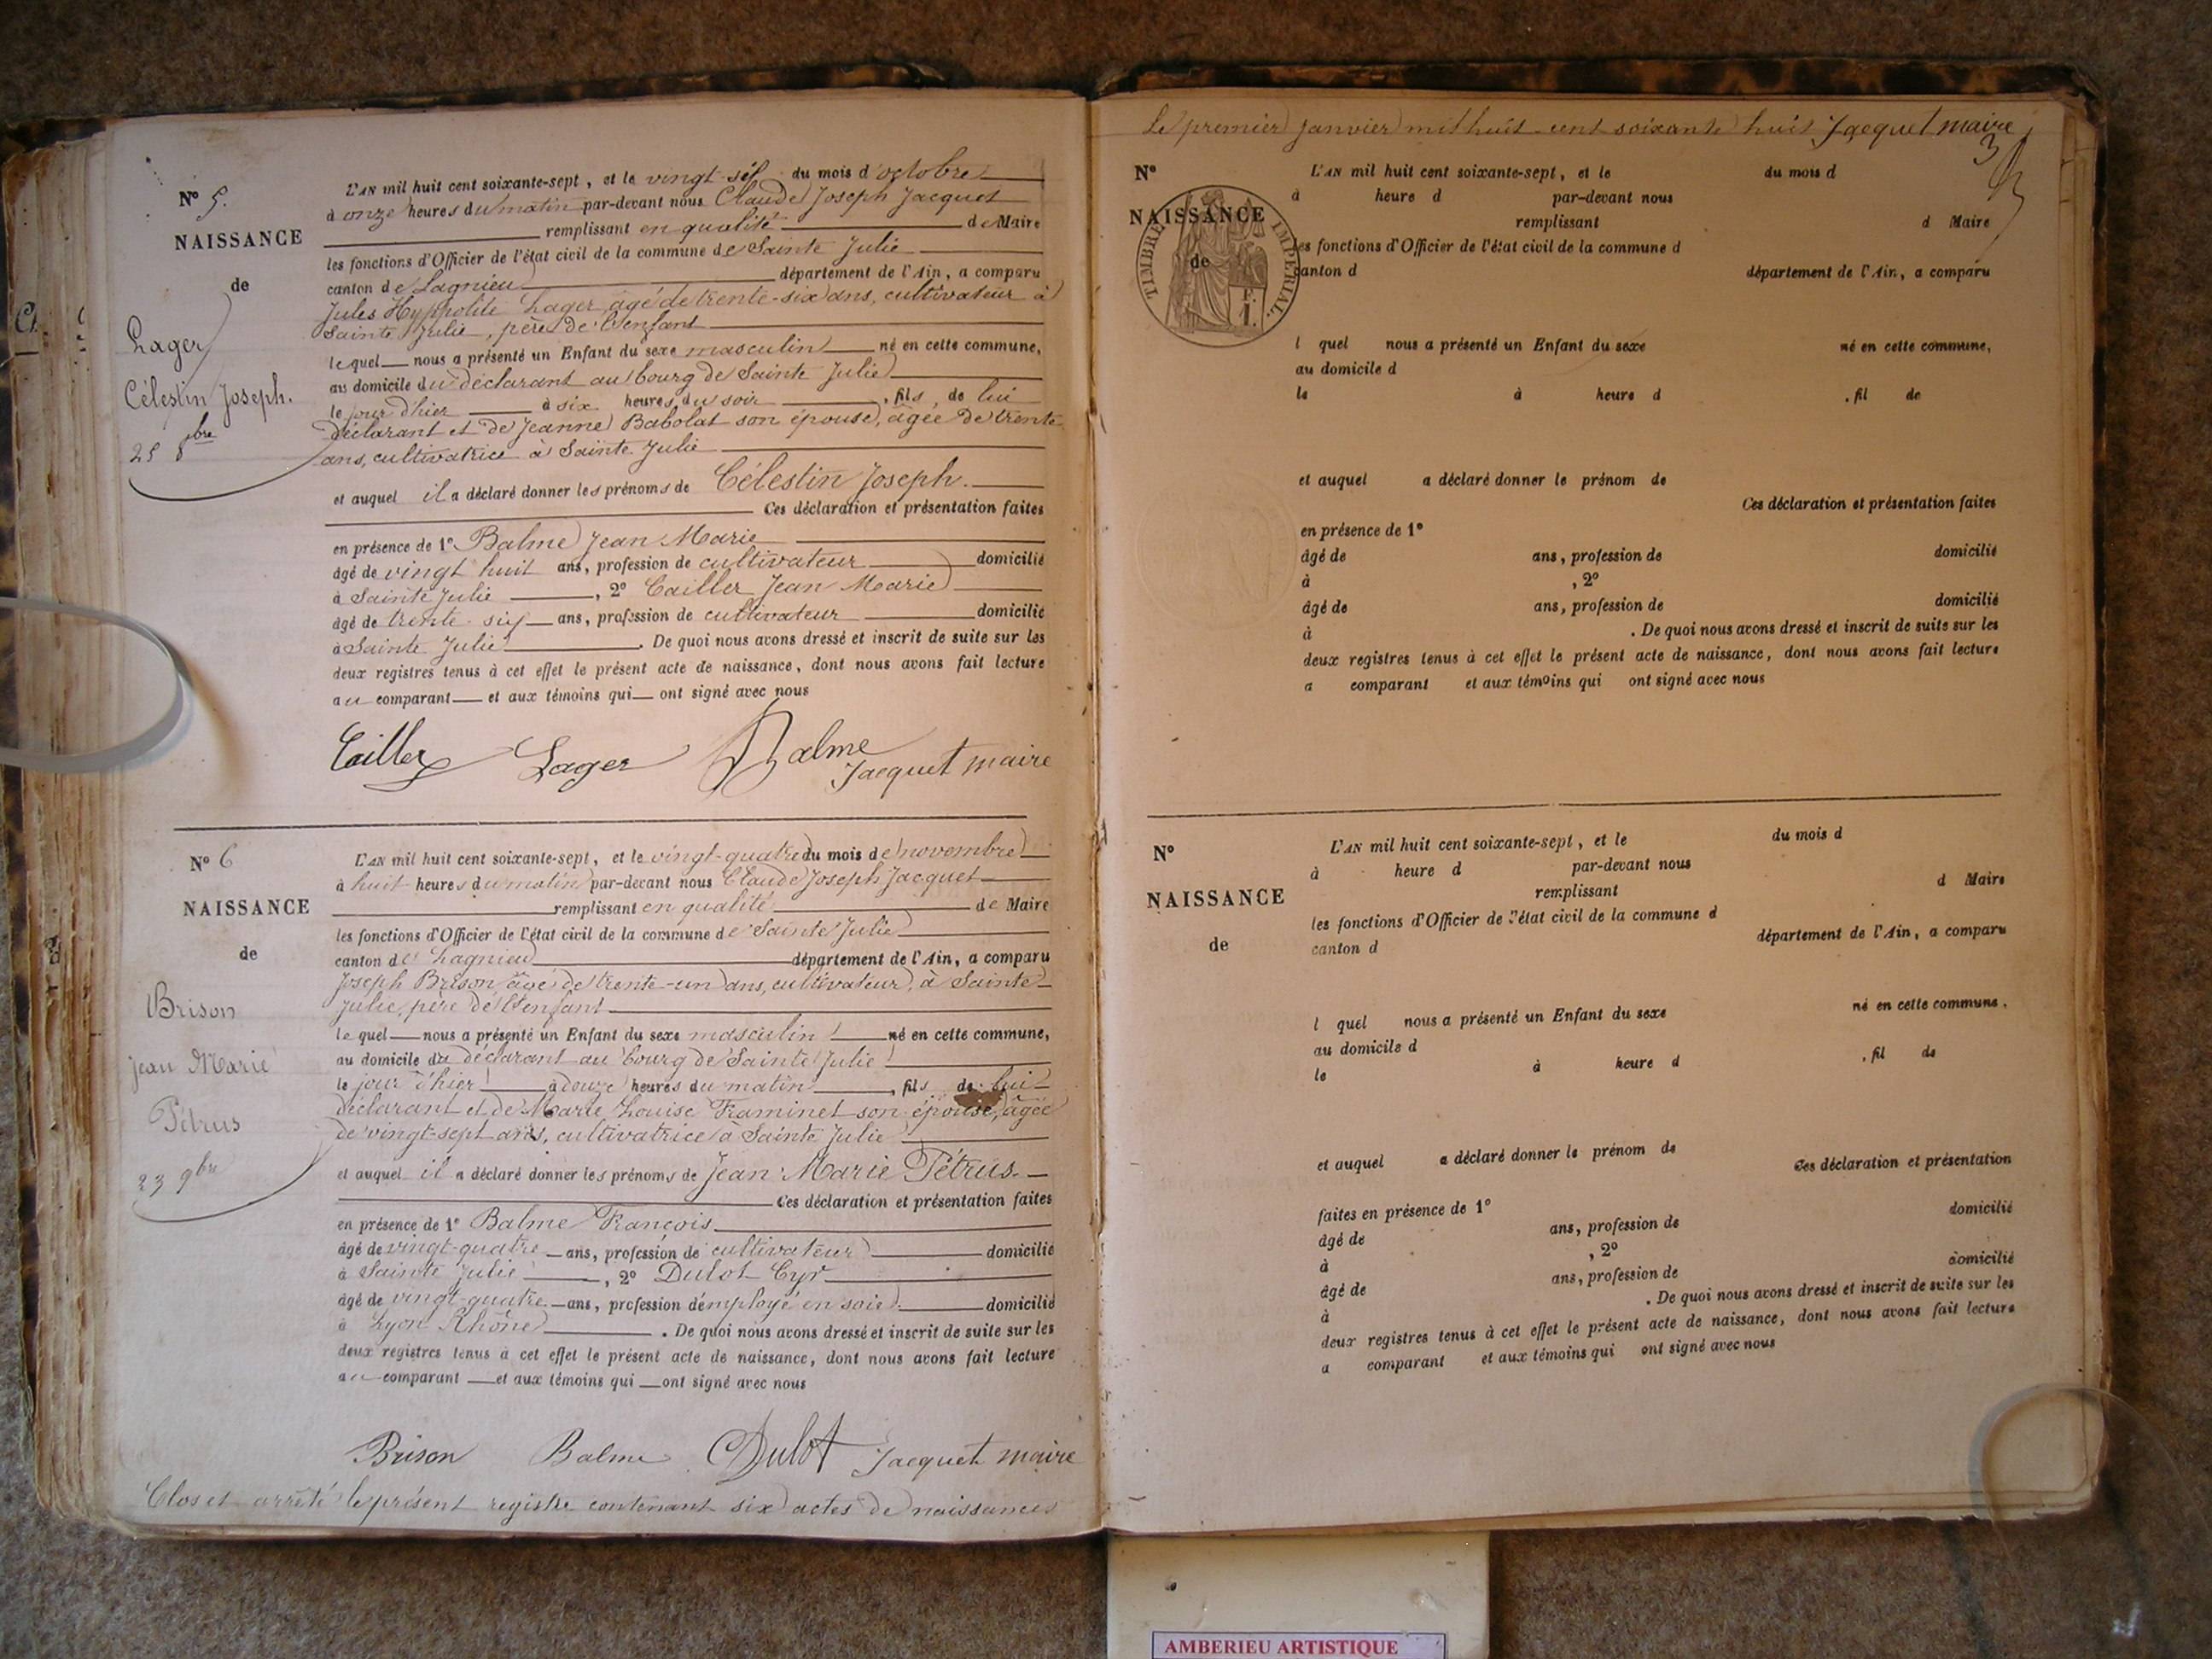 N° 5.
NAISSANCE
de
Lager
Célestin Joseph.
25 8bre
L'AN mil huit cent soixante-sept, et le vingt six du mois d'octobre
à onze heures du matin par-devant nous Claude Joseph Jacquet
remplissant en qualité de Maire
les fonctions d'Officier de l'état civil de la commune de Sainte Julie
canton de Lagnieu département de l'Ain, a comparu
Jules Hyppolite Lager, âgé de trente-six ans, cultivateur à
Sainte Julie, père de l'enfant
lequel nous a présenté un Enfant du sexe masculin né en cette commune,
au domicile du déclarant au bourg de Sainte Julie
le jour d'hier à six heures du soir, fils de lui
déclarant et de Jeanne Babolat son épouse, âgée de trente
ans, cultivatrice à Sainte Julie
et auquel il a déclaré donner les prénoms de Célestin Joseph.
Ces déclaration et présentation faites
en présence de 1° Balme Jean Marie
âgé de vingt huit ans, profession de cultivateur domicilié
à Sainte Julie, 2° Cailler Jean Marie
âgé de trente-six ans, profession de cultivateur domicilié
à Sainte Julie. De quoi nous avons dressé et inscrit de suite sur les
deux registres tenus à cet effet le présent acte de naissance, dont nous avons fait lecture
au comparant et aux témoins qui ont signé avec nous
Cailler Lager Balme
Jacquet maire
N° 6
NAISSANCE
de
Brison
Jean Marie
Pétrus
23 9bre
L'AN mil huit cent soixante-sept, et le vingt-quatre du mois de novembre
à huit heures du matin par-devant nous Claude Joseph Jacquet
remplissant en qualité de Maire
les fonctions d'Officier de l'état civil de la commune de Sainte Julie
canton de Lagnieu département de l'Ain, a comparu
Joseph Brison âgé de trente-un ans, cultivateur, à Sainte
Julie, père de l'enfant
lequel nous a présenté un Enfant du sexe masculin né en cette commune,
au domicile du déclarant au bourg de Sainte Julie
le jour d'hier à douze heures du matin, fils de lui
déclarant et de Marie Louise Framinet son épouse, âgée
de vingt-sept ans, cultivatrice à Sainte Julie
et auquel il a déclaré donner les prénoms de Jean Marie Pétrus.
Ces déclaration et présentation faites
en présence de 1° Balme François
âgé de vingt-quatre ans, profession de cultivateur domicilié
à Sainte Julie, 2° Dulot Cyr
âgé de vingt-quatre ans, profession d'employé en soie domicilié
à Lyon Rhône. De quoi nous avons dressé et inscrit de suite sur les
deux registres tenus à cet effet le présent acte de naissance, dont nous avons fait lecture
au comparant et aux témoins qui ont signé avec nous
Brison Balme CDulot Jacquet maire
Clos et arrêté le présent registre contenant six actes de naissances
Le premier janvier mil huit cent soixante huit Jacquet maire
3
N°
NAISSANCE
de
TIMBRE IMPERIAL.
F.
1.
L'AN mil huit cent soixante-sept, et le du mois d
à heure d par-devant nous
remplissant d Maire
les fonctions d'Officier de l'état civil de la commune d
canton d département de l'Ain, a comparu
l quel nous a présenté un Enfant du sexe né en cette commune,
au domicile d
le à heure d , fil de
et auquel a déclaré donner le prénom de
Ces déclaration et présentation faites
en présence de 1°
âgé de ans, profession de domicilié
à , 2°
âgé de ans, profession de domicilié
à . De quoi nous avons dressé et inscrit de suite sur les
deux registres tenus à cet effet le présent acte de naissance, dont nous avons fait lecture
a comparant et aux témoins qui ont signé avec nous
N°
NAISSANCE
de
L'AN mil huit cent soixante-sept, et le du mois d
à heure d par-devant nous
remplissant d Maire
les fonctions d'Officier de l'état civil de la commune d
canton d département de l'Ain, a comparu
l quel nous a présenté un Enfant du sexe né en cette commune.
au domicile d
le à heure d , fil de
et auquel a déclaré donner le prénom de
Ces déclaration et présentation
faites en présence de 1°
âgé de ans, profession de domicilié
à , 2°
âgé de ans, profession de domicilié
à . De quoi nous avons dressé et inscrit de suite sur les
deux registres tenus à cet effet le présent acte de naissance, dont nous avons fait lecture
a comparant et aux témoins qui ont signé avec nous
AMBERIEU ARTISTIQUE